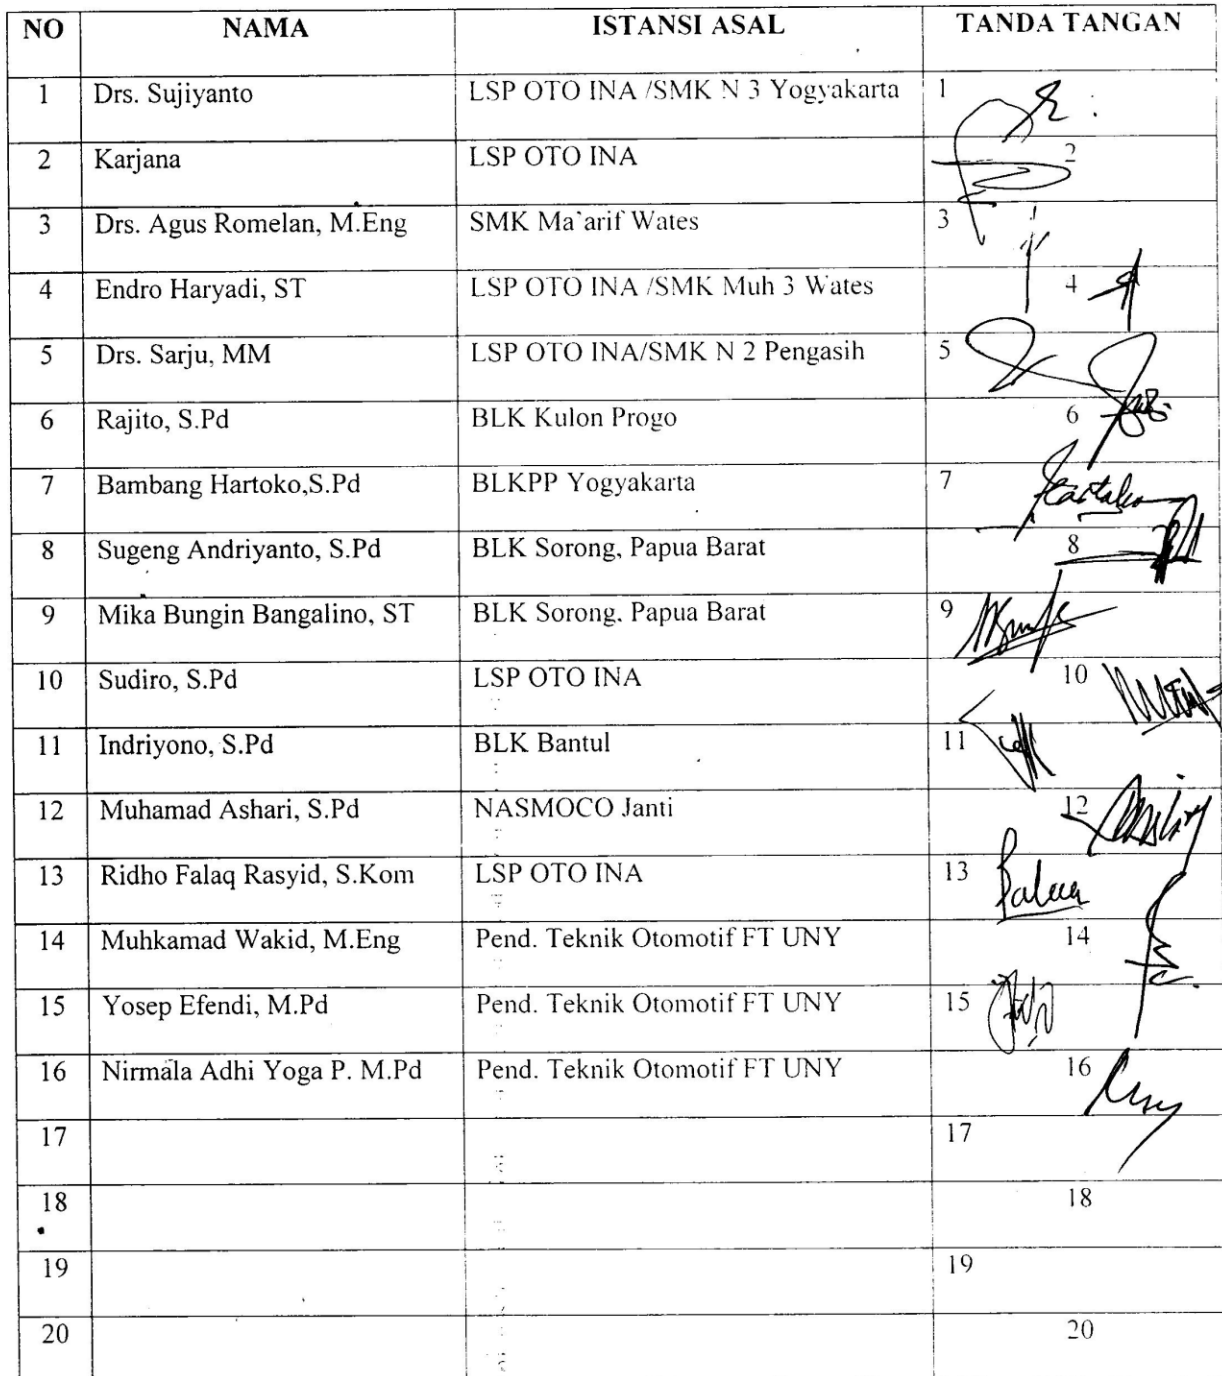 NO NAMA ISTANSI ASAL TANDA TANGAN
1 Drs. Sujiyanto LSP OTO INA /SMK N 3 Yogyakarta 1
2 Karjana LSP OTO INA 2
3 Drs. Agus Romelan, M.Eng SMK Ma`arif Wates 3
4 Endro Haryadi, ST LSP OTO INA /SMK Muh 3 Wates 4
5 Drs. Sarju, MM LSP OTO INA/SMK N 2 Pengasih 5
6 Rajito, S.Pd BLK Kulon Progo 6
7 Bambang Hartoko,S.Pd BLKPP Yogyakarta 7
8 Sugeng Andriyanto, S.Pd BLK Sorong, Papua Barat 8
9 Mika Bungin Bangalino, ST BLK Sorong, Papua Barat 9
10 Sudiro, S.Pd LSP OTO INA 10
11 Indriyono, S.Pd BLK Bantul 11
12 Muhamad Ashari, S.Pd NASMOCO Janti 12
13 Ridho Falaq Rasyid, S.Kom LSP OTO INA 13
14 Muhkamad Wakid, M.Eng Pend. Teknik Otomotif FT UNY 14
15 Yosep Efendi, M.Pd Pend. Teknik Otomotif FT UNY 15
16 Nirmala Adhi Yoga P. M.Pd Pend. Teknik Otomotif FT UNY 16
17 17
18 18
19 19
20 20